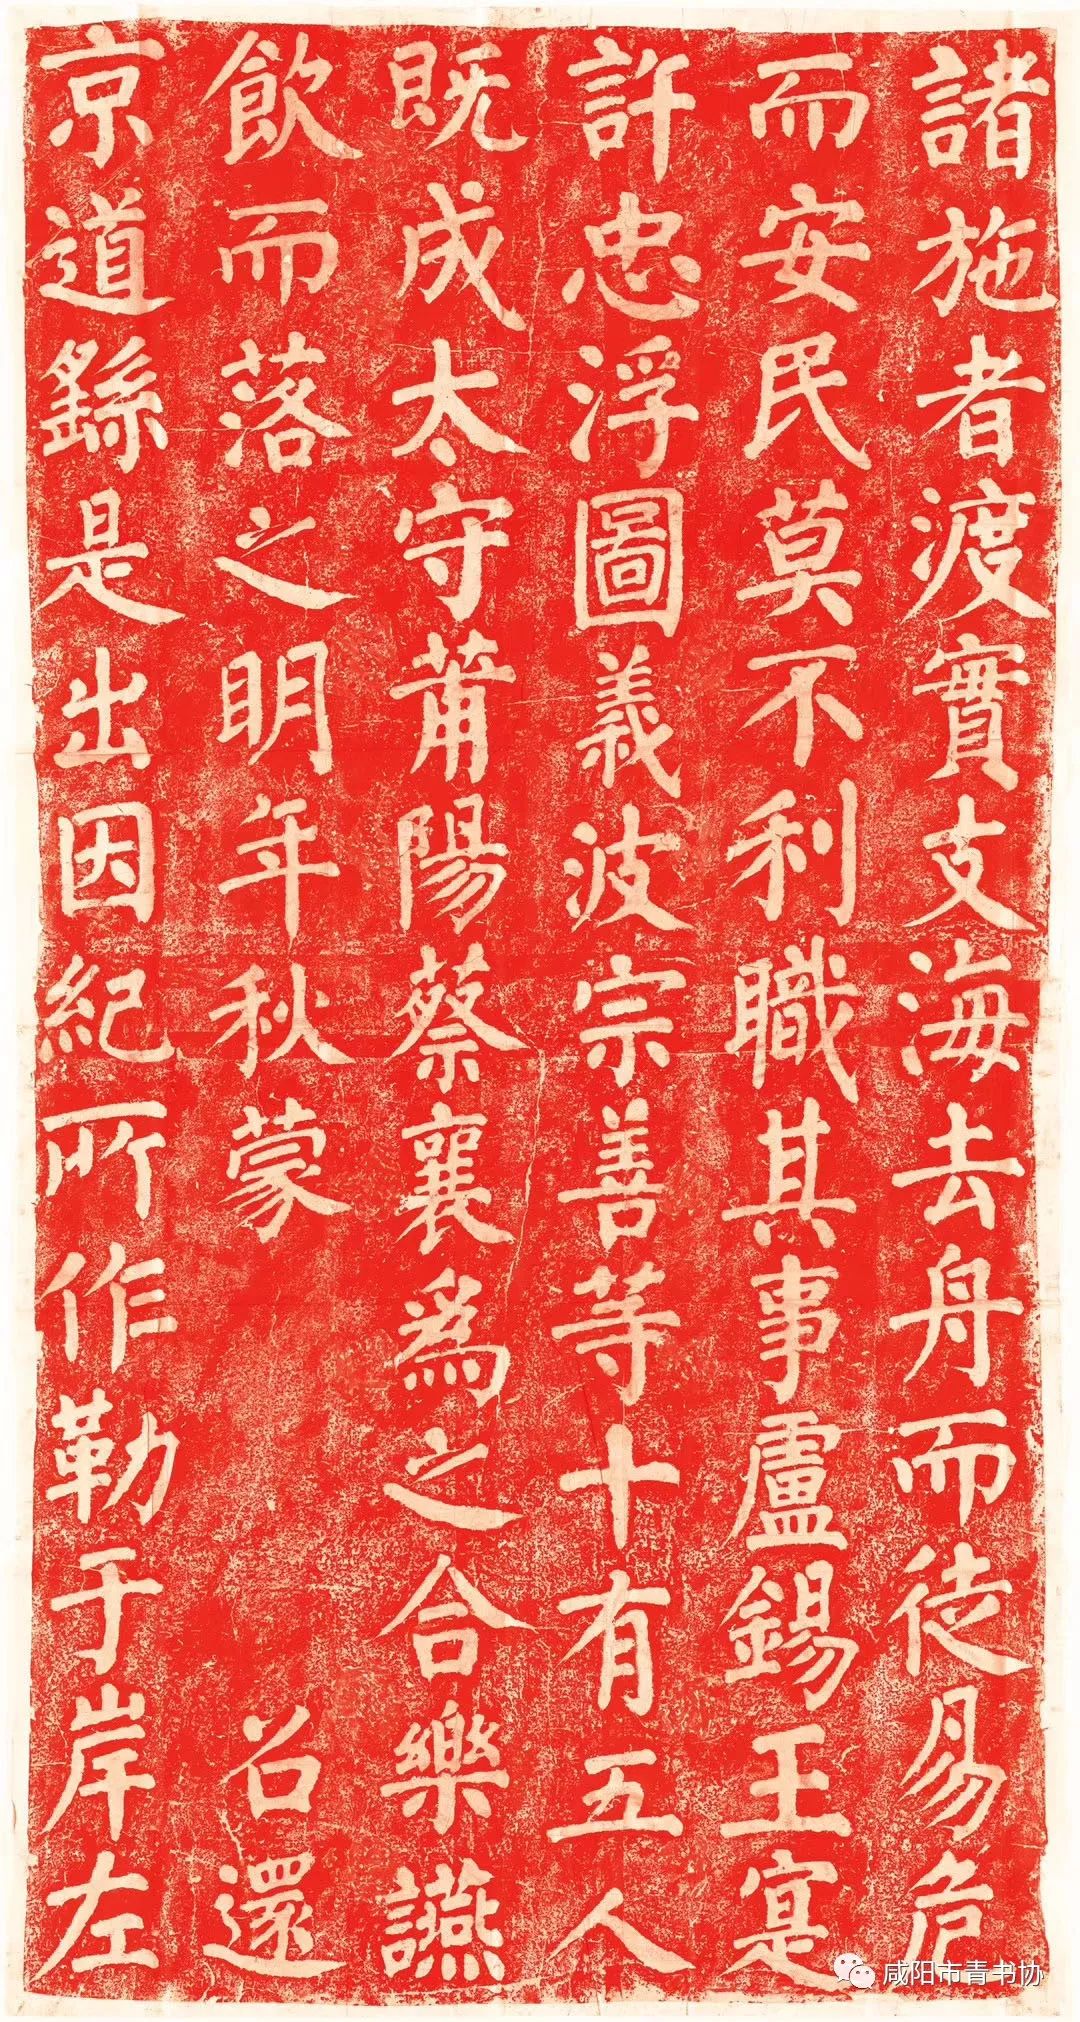 諸施者渡實支海去舟而徒易危
而安民莫不利職其事盧錫王寔
許忠浮圖義波宗善等十有五人
既成太守莆陽蔡襄為之合樂讌
飲而落之明年秋蒙 召還
京道繇是出因紀所作勒于岸左
咸阳市青书协